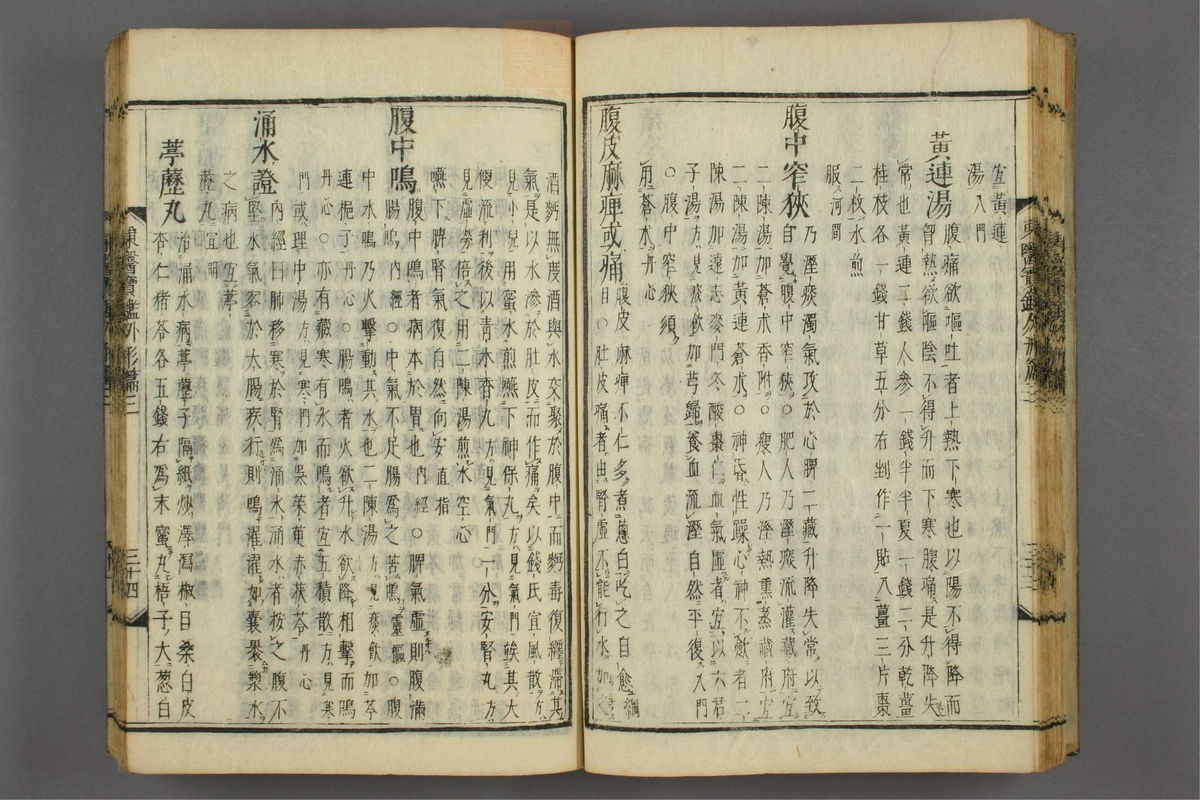 宜黃連
湯入門
黃連湯 腹痛欲嘔吐者上熱下寒也以陽不得降而
胷熱欲嘔陰不得升而下寒腹痛是升降失
常也黃連二錢人參一錢半半夏一錢二分乾薑
桂枝各一錢甘草五分右剉作一貼入薑三片棗
二枚水煎
服河間
腹中窄狹 乃溼痰濁氣攻於心脾二藏升降失常以致
自覺腹中窄狹○肥人乃溼痰流灌藏府宜
二陳湯加蒼朮香附○瘦人乃溼熱熏蒸藏府宜
二陳湯加黃連蒼朮○神昏性躁心神不飲者二
陳湯加遠志麥門冬酸棗仁血氣虛者宜以六君
子湯方見痰飲加芎歸養血流溼自然平復入門
○腹中窄狹須
用蒼朮丹心
腹皮麻痺或痛 腹皮麻痺不仁多煮葱白吃之自愈綱
目○肚皮痛者由腎虛不能行水加之
東醫寶鑑外形篇三
三十三
酒麪無度酒與水交聚於腹中而麪毒復纏滯其
氣是以水滲於肚皮而作痛矣以錢氏宜風散方
見小兒用蜜水煎嚥下神保丸方見氣門候其大
便流利後以靑木香丸方見氣門一分安腎丸方
見虛勞倍之用二陳湯煎水空心
嚥下脾腎氣復自然向安直指
腹中鳴 腹中鳴者病本於胃也內經○脾氣虛則腹滿
腸鳴內經○中氣不足腸爲之苦鳴靈樞○腹
中水鳴乃火擊動其水也二陳湯方見痰飲加芩
連梔子丹心○腸鳴者火飮升水飮降相擊而鳴
丹心○亦有藏寒有水而鳴者宜五積散方見寒
門或理中湯方見寒門加吳茱萸赤茯苓丹心
涌水證 內經曰肺移寒於腎爲涌水涌水者按之腹不
堅水氣客於大腸疾行則鳴濯濯如囊裹漿水
之病也宜葶
藶丸宣明
葶藶丸 治涌水病葶藶子隔紙炒澤瀉椒目桑白皮
杏仁猪苓各五錢右爲末蜜丸梧子大葱白
東醫寶鑑外形篇三
三十四